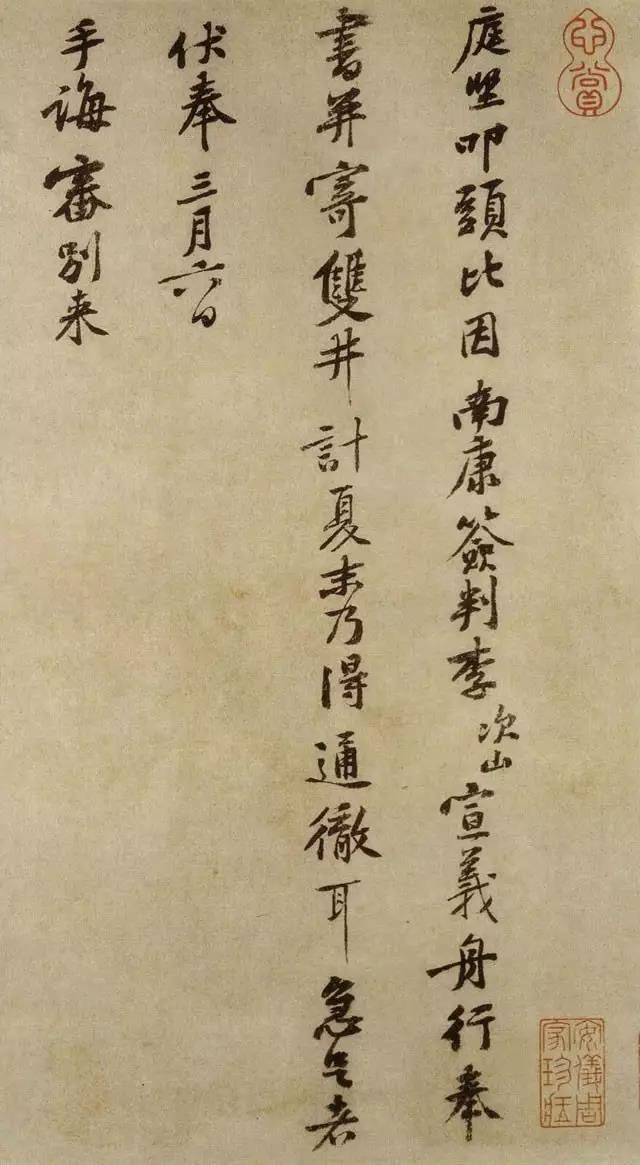 心賞
庭堅叩頭比因南康簽判李次山宣義舟行奉
書并寄雙井計夏末乃得通徹耳急足者
伏奉三月六日
手誨審別来
安儀周家珍藏